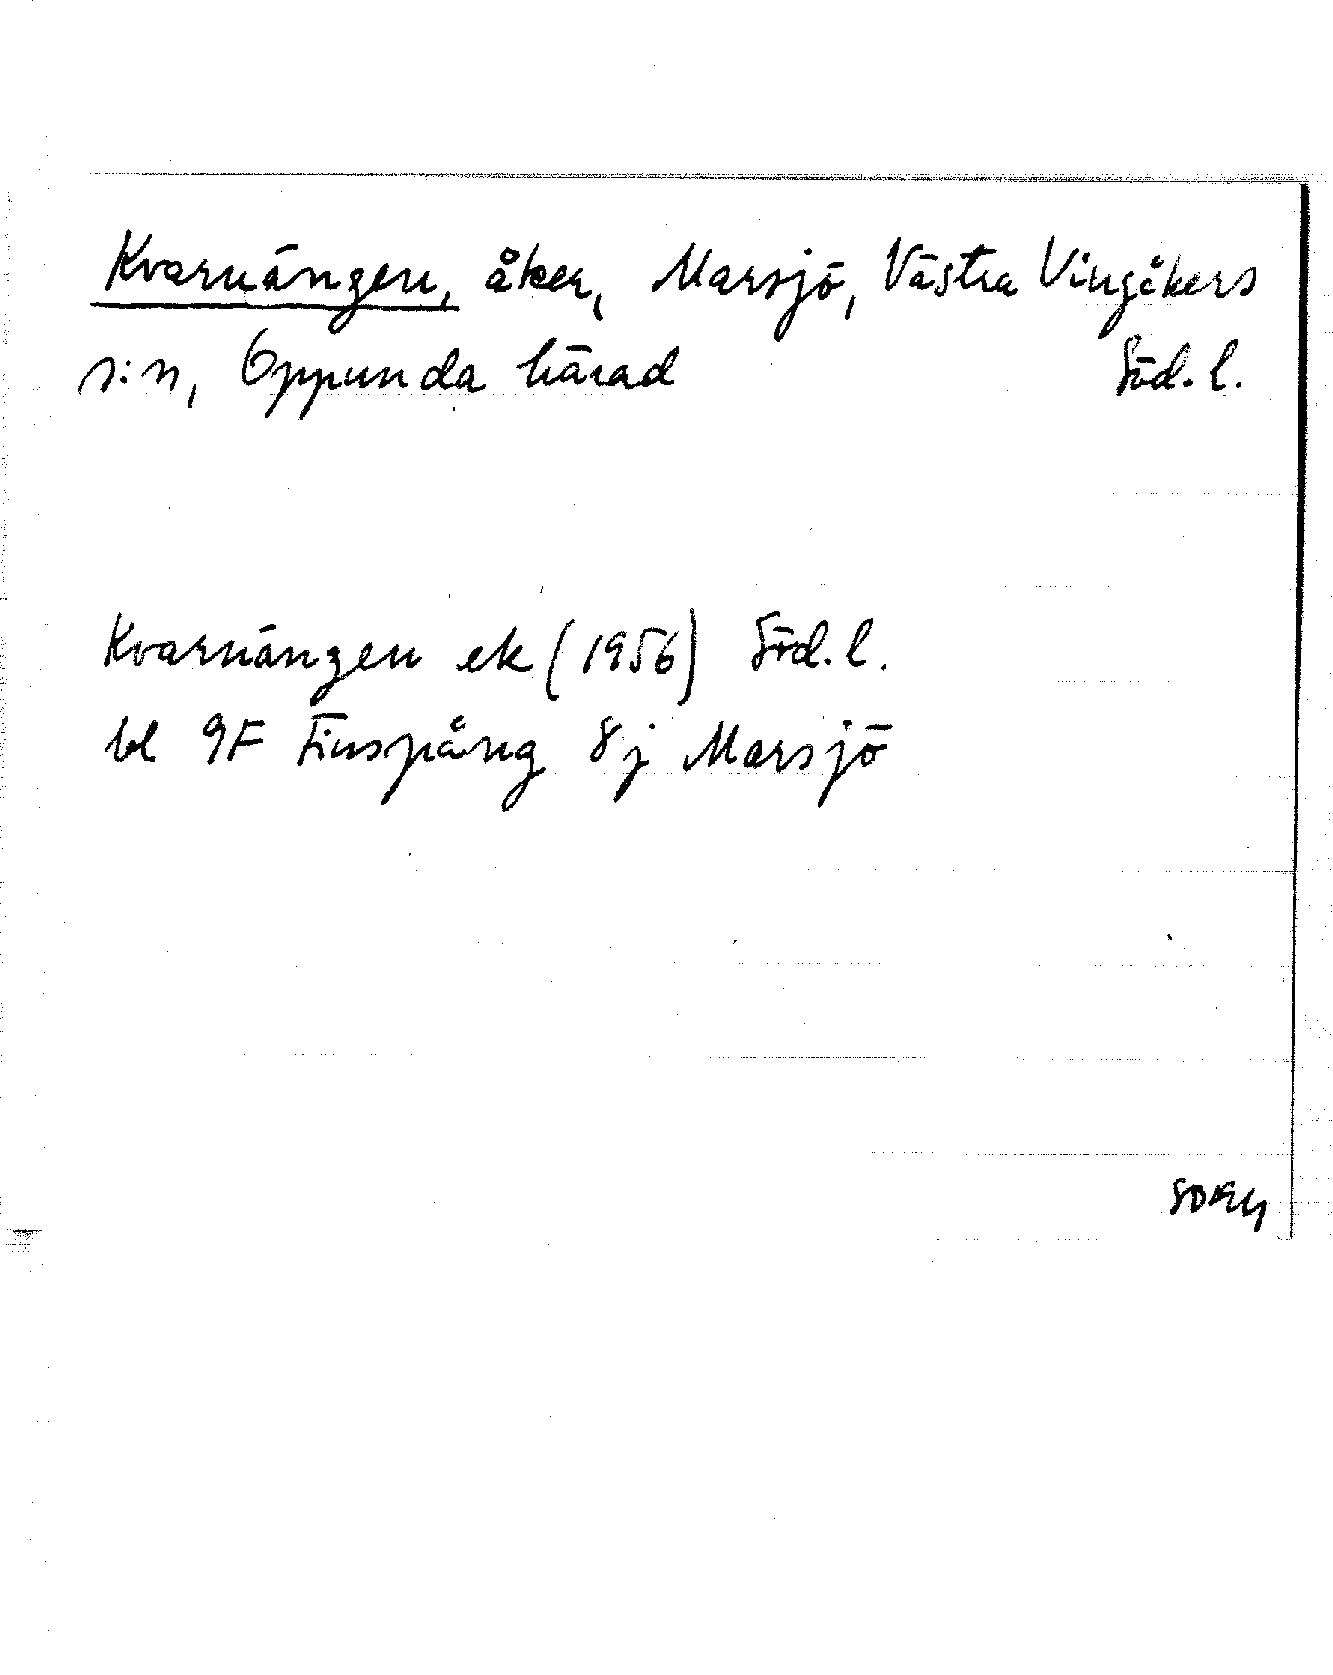 Kvarnängen, åker, Marsjö, Västra Vingåkers
s:n, Oppunda härad Söd. l.
Kvarnängen ek (1956) Söd. l.
bl 9F Finspång 8j Marsjö